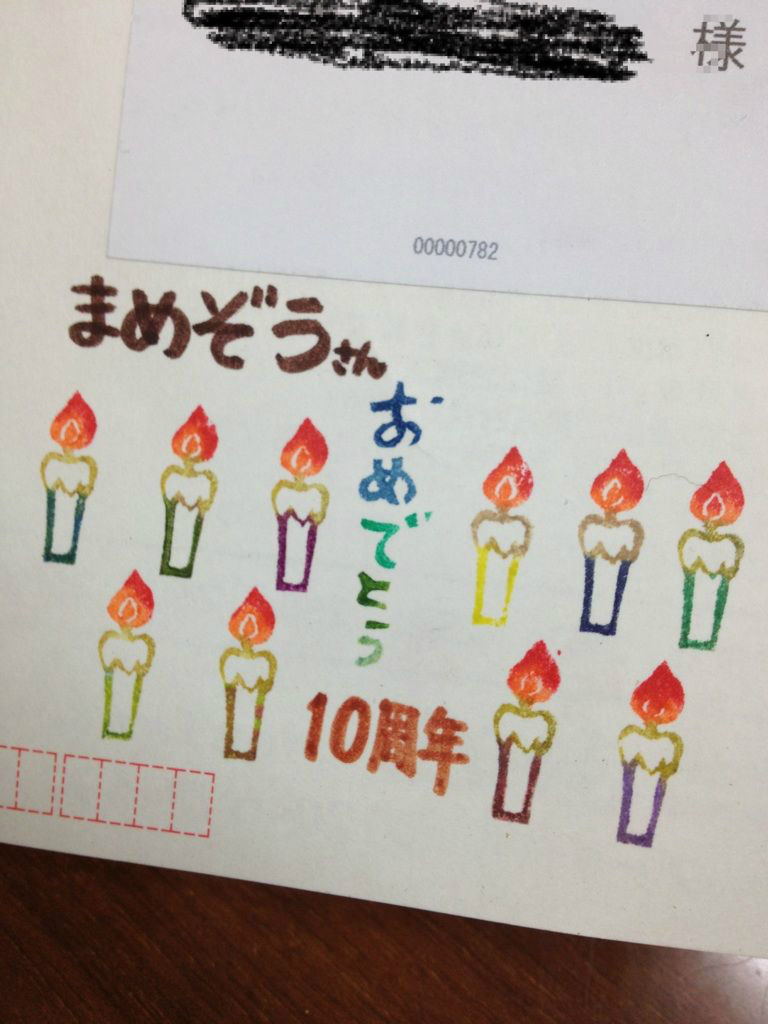 様
00000782
まめぞうさん
おめでとう
10周年